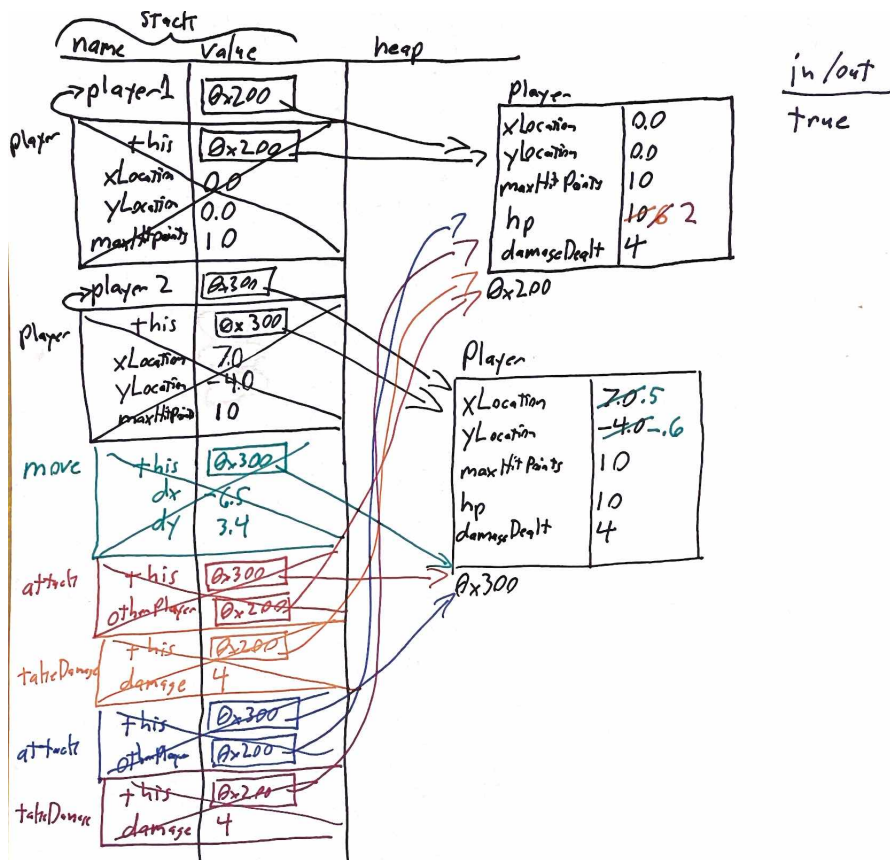 stack
name value heap
in/out
true
player1 0x200
player
this 0x200
xLocation 0.0
yLocation 0.0
maxHitPoints 10
player 2 0x300
player
this 0x300
xLocation 7.0
yLocation -4.0
maxHitPoints 10
move
this 0x300
dx -6.5
dy 3.4
attack
this 0x300
otherPlayer 0x200
takeDamage
this 0x200
damage 4
attack
this 0x300
otherPlayer 0x200
takeDamage
this 0x200
damage 4
Player
xLocation 0.0
yLocation 0.0
maxHitPoints 10
hp 10 6 2
damageDealt 4
0x200
Player
xLocation 7.0 .5
yLocation -4.0 -.6
maxHitPoints 10
hp 10
damageDealt 4
0x300